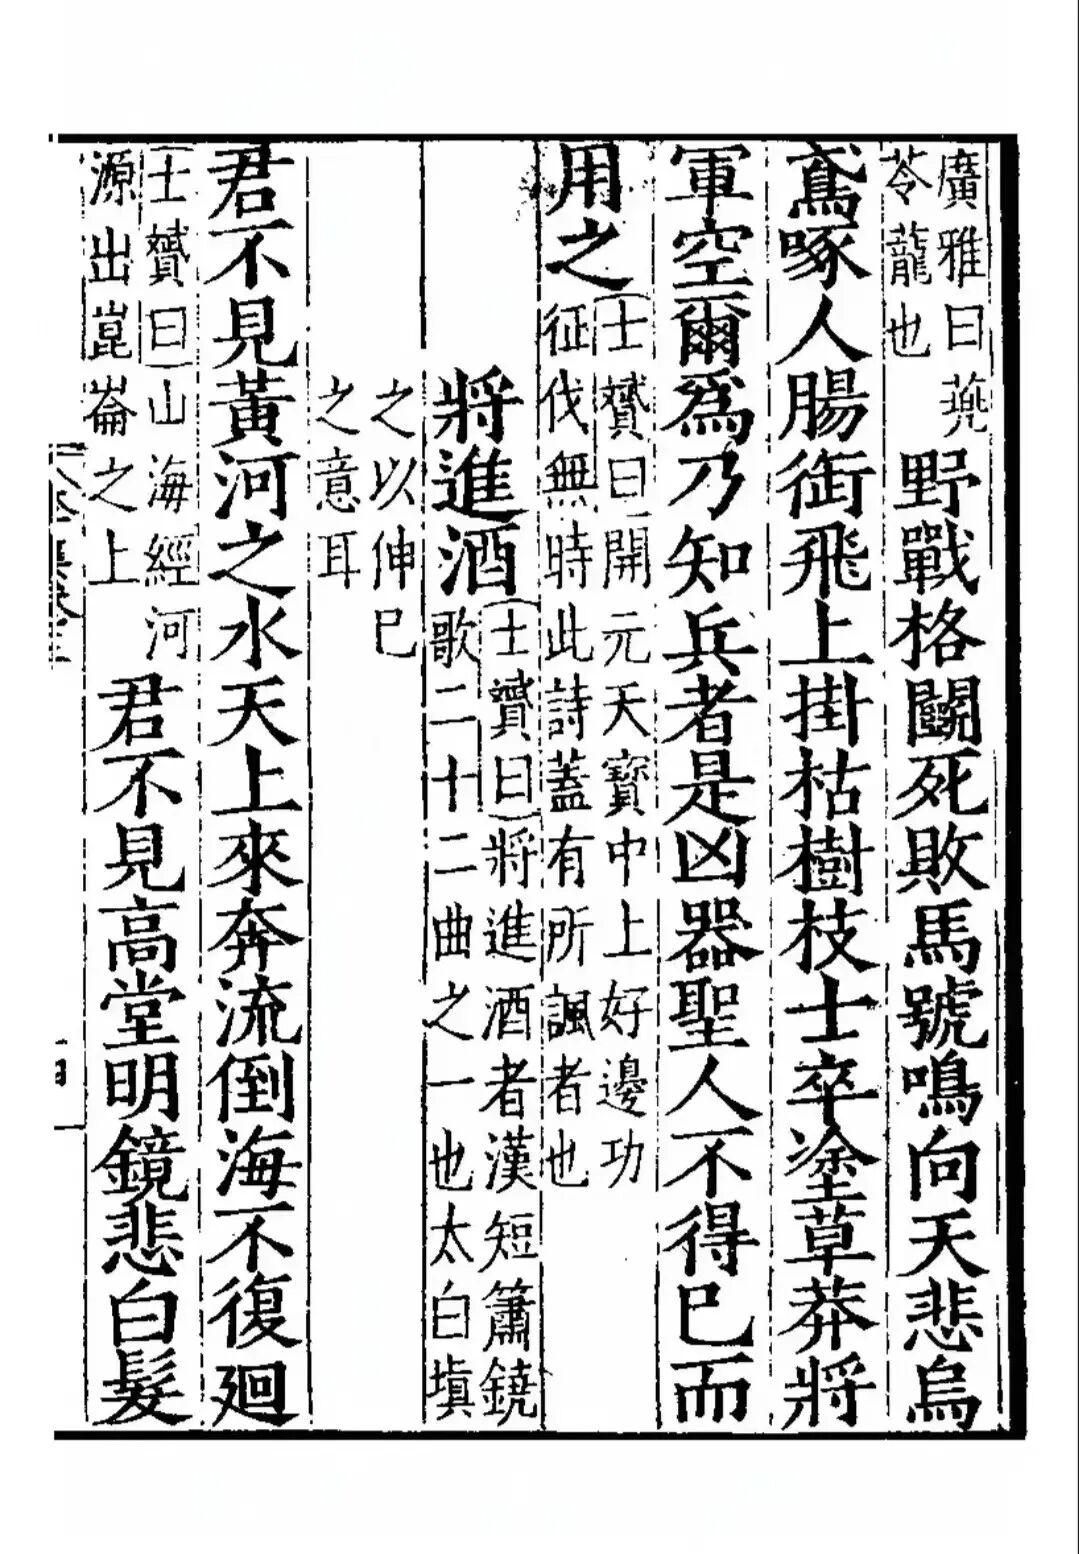 廣雅曰𦽏
苓龍也
野戰格鬭死敗馬號鳴向天悲烏
鳶啄人腸銜飛上掛枯樹枝士卒塗草莽將
軍空爾爲乃知兵者是凶器聖人不得已而
用之
士贇曰開元天寶中上好邊功
征伐無時此詩蓋有所諷者也
將進酒
士贇曰將進酒者漢短簫鐃
歌二十二曲之一也太白塡
之以伸巳
之意耳
君不見黃河之水天上來奔流倒海不復廻
士贇曰山海經河
源出崑崙之上
君不見高堂明鏡悲白髮